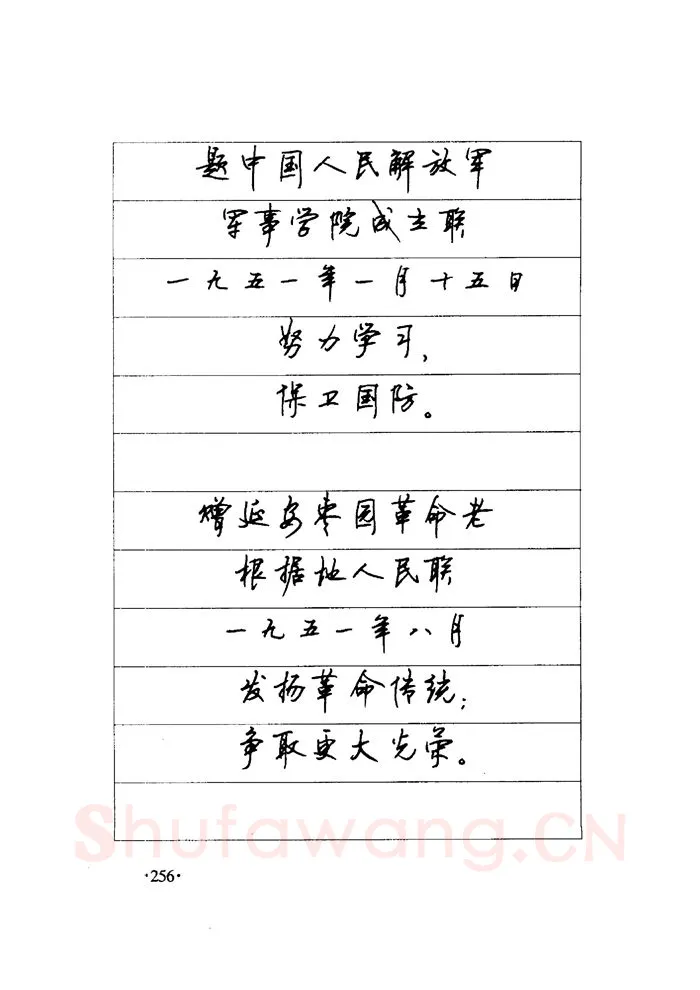 题中国人民解放军
军事学院成立联
一九五一年一月十五日
努力学习,
保卫国防。
赠延安枣园革命老
根据地人民联
一九五一年八月
发扬革命传统;
争取更大光荣。
Shufawang.CN
·256·